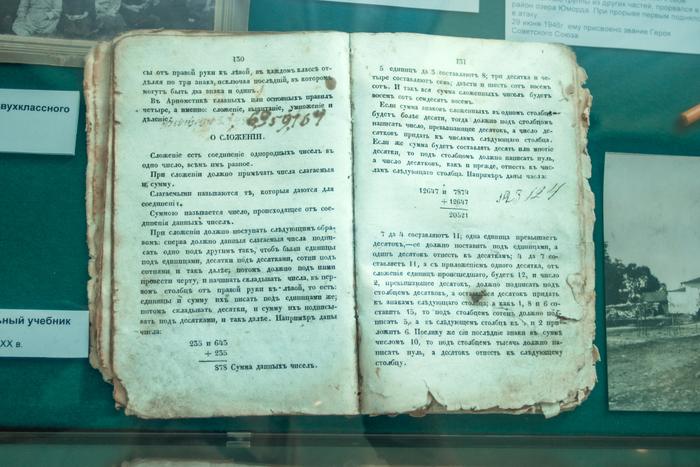 район озера Юморда. При прорыве первым поднялся
в атаку.
29 июня 1940г. ему присвоено звание Героя
Советского Союза
вухклассного
ьный учебник
XX в.
130
сы отъ правой руки къ лѣвой, въ каждомъ классѣ от-
дѣляя по три знака, исключая послѣдній, въ которомъ
могутъ быть два знака и одинъ.
Въ Ариѳметикѣ главныхъ или основныхъ правилъ
четыре, а именно: сложеніе, вычитаніе, умноженіе и
дѣленіе.
6959164
О СЛОЖЕНІИ.
Сложеніе есть соединеніе однородныхъ чиселъ въ
одно число, всѣмъ имъ разное.
При сложеніи должно примѣчать числа слагаемыя
и сумму.
Слагаемыми называются тѣ, которыя даются для
соединенія.
Суммою называется число, происходящее отъ сое-
диненія данныхъ чиселъ.
При сложеніи должно поступать слѣдующимъ обра-
зомъ: сперва должно данныя слагаемыя числа подпи-
сать одно подъ другимъ такъ, чтобъ были единицы
подъ единицами, десятки подъ десятками, сотни подъ
сотнями и такъ далѣе; потомъ должно подъ ними
провести черту, и начинать складывать числа, въ пер-
вомъ столбцѣ отъ правой руки къ лѣвой, то есть:
единицы и сумму ихъ писать подъ единицами же;
потомъ складывать десятки, и сумму ихъ подписы-
вать подъ десятками, и такъ далѣе. Напримѣръ даны
числа:
235 и 643
+ 235
878 Сумма данныхъ чиселъ.
131
5 единицъ да 3 составляютъ 8; три десятка и че-
тыре составляютъ семь; двѣсти и шесть сотъ восемь
сотъ. И такъ вся сумма сложенныхъ чиселъ будетъ
восемь сотъ семдесятъ восемь.
Если сумма знаковъ сложенныхъ въ одномъ столбцѣ
будетъ болѣе десяти, тогда должно подъ столбцомъ
написать число, превышающее десятокъ, а число де-
сятковъ придать къ числамъ слѣдующаго столбца.
Если же сумма будетъ составлять десять или многіе
десятки, то подъ столбцомъ должно написать нуль,
а число десятковъ, какъ и прежде, отнесть къ чис-
ламъ слѣдующаго столбца. Напримѣръ даны числа:
12647 и 7874
+ 12647
20521
7 да 4 составляютъ 11; одна единица превышаетъ
десятокъ,—ее должно поставить подъ единицами, а
одинъ десятокъ отнесть къ десяткамъ; 4 да 7 со-
ставляетъ 11, а съ приложеніемъ одного десятка, отъ
сложенія единицъ происшедшаго, будетъ 12, и число
2, превышающее десятокъ, должно подписать подъ
столбцомъ десятковъ, а оставшійся десятокъ придать
къ знакамъ слѣдующаго столбца; а какъ 1, 8 и 6 со-
ставитъ 15, то подъ столбцомъ сотенъ должно под-
писать 5, а къ слѣдующему столбцу къ 7 и 2 при-
ложить 6. Поелику же сіи послѣдніе знаки въ сумму
числомъ 10, то подъ столбцемъ тысячъ должно на-
писать нуль, а десятокъ отнесть къ слѣдующему
столбцу.